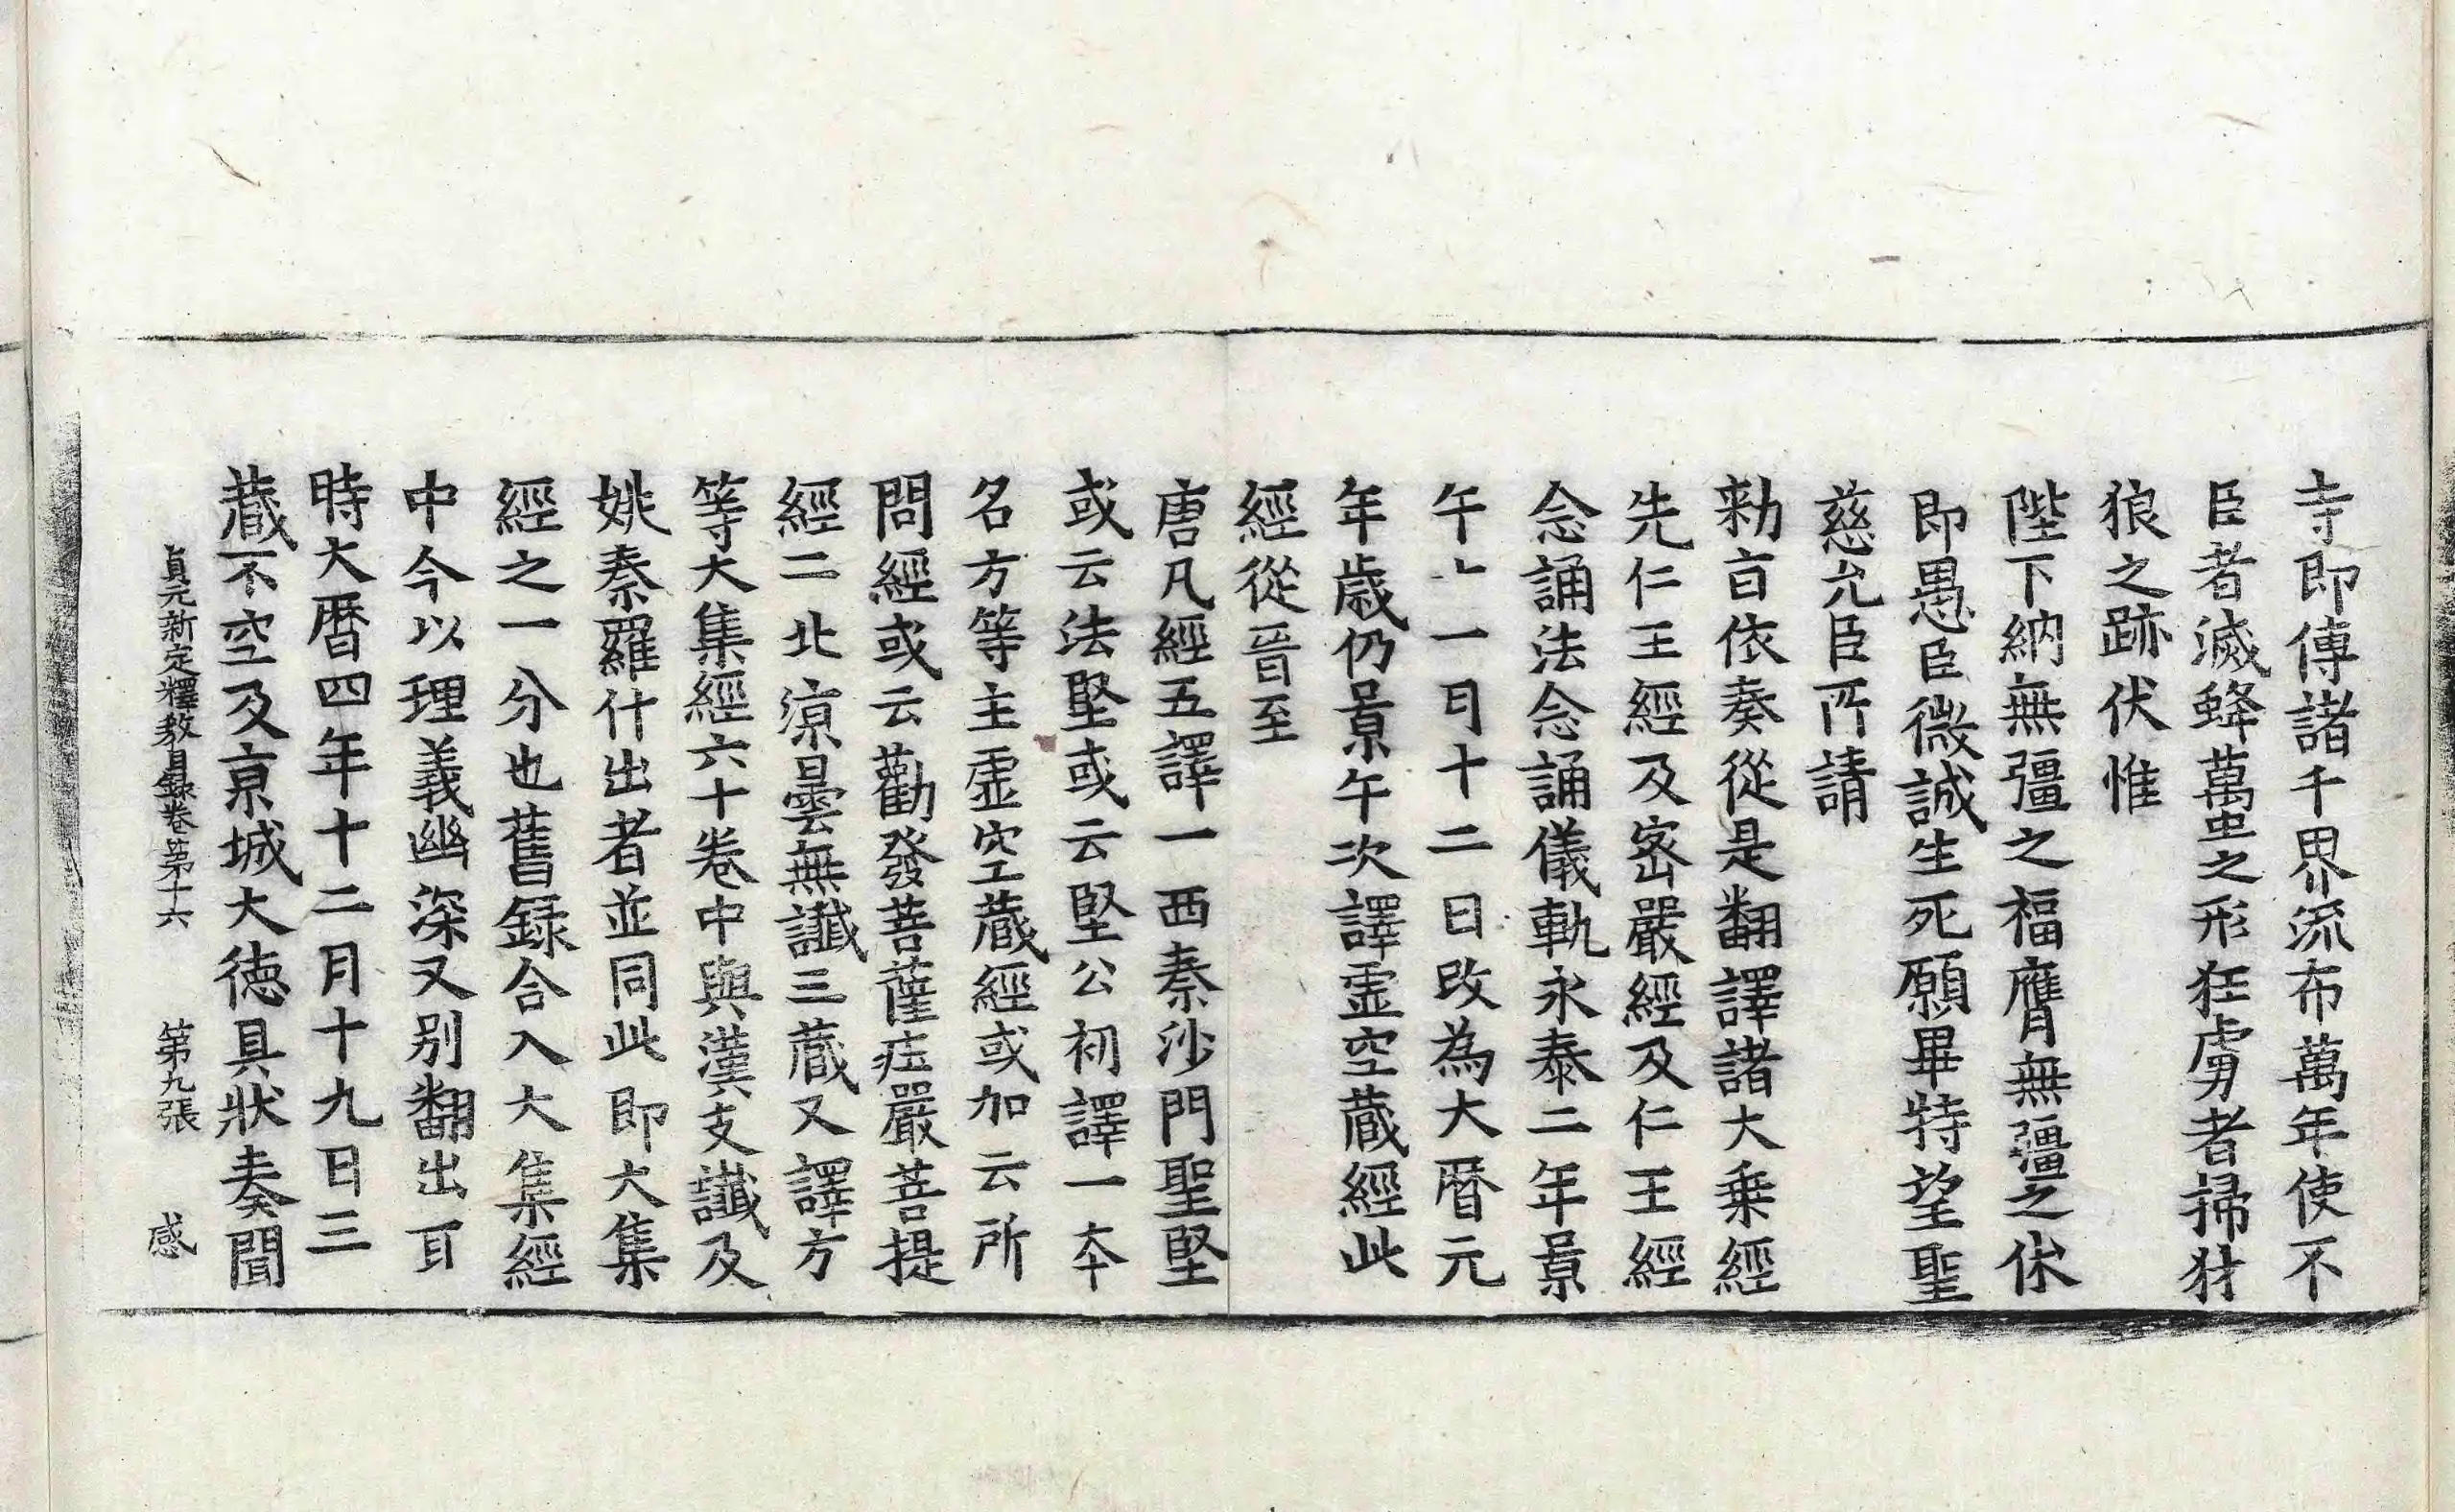 寺即傳諸千界流布萬年使不
臣者滅蜂萬虫之形狂虜者掃犲
狼之跡伏惟
陛下納無彊之福膺無彊之休
即愚臣微誠生死願畢特望聖
慈允臣所請
勑旨依奏從是翻譯諸大乗經
先仁王經及密嚴經及仁王經
念誦法念誦儀軌永泰二年景
午 一月十二日改為大暦元
年歳仍景午次譯虛空蔵經此
經從晉至
唐凡經五譯一西秦沙門聖堅
或云法堅或云堅公初譯一本
名方等主虛空蔵經或加云所
問經或云勸發菩薩莊嚴菩提
經二北涼曇無讖三蔵又譯方
等大集經六十卷中與漢支讖及
姚秦羅什出者並同此即大集
經之一分也舊録合入大集經
中今以理義幽深又別翻出頁
時大暦四年十二月十九日三
蔵不空及京城大徳具狀奏聞
貞元新定釋教目録卷第十六 第九張 感